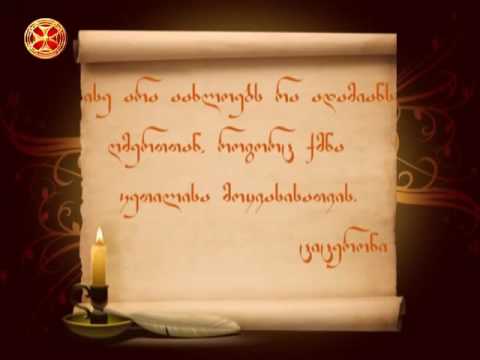 ისე არა აახლოებს რა ადამიანს
ღმერთთან, როგორც ქმნა
კეთილისა მოყვასისათვის.
ციცერონი